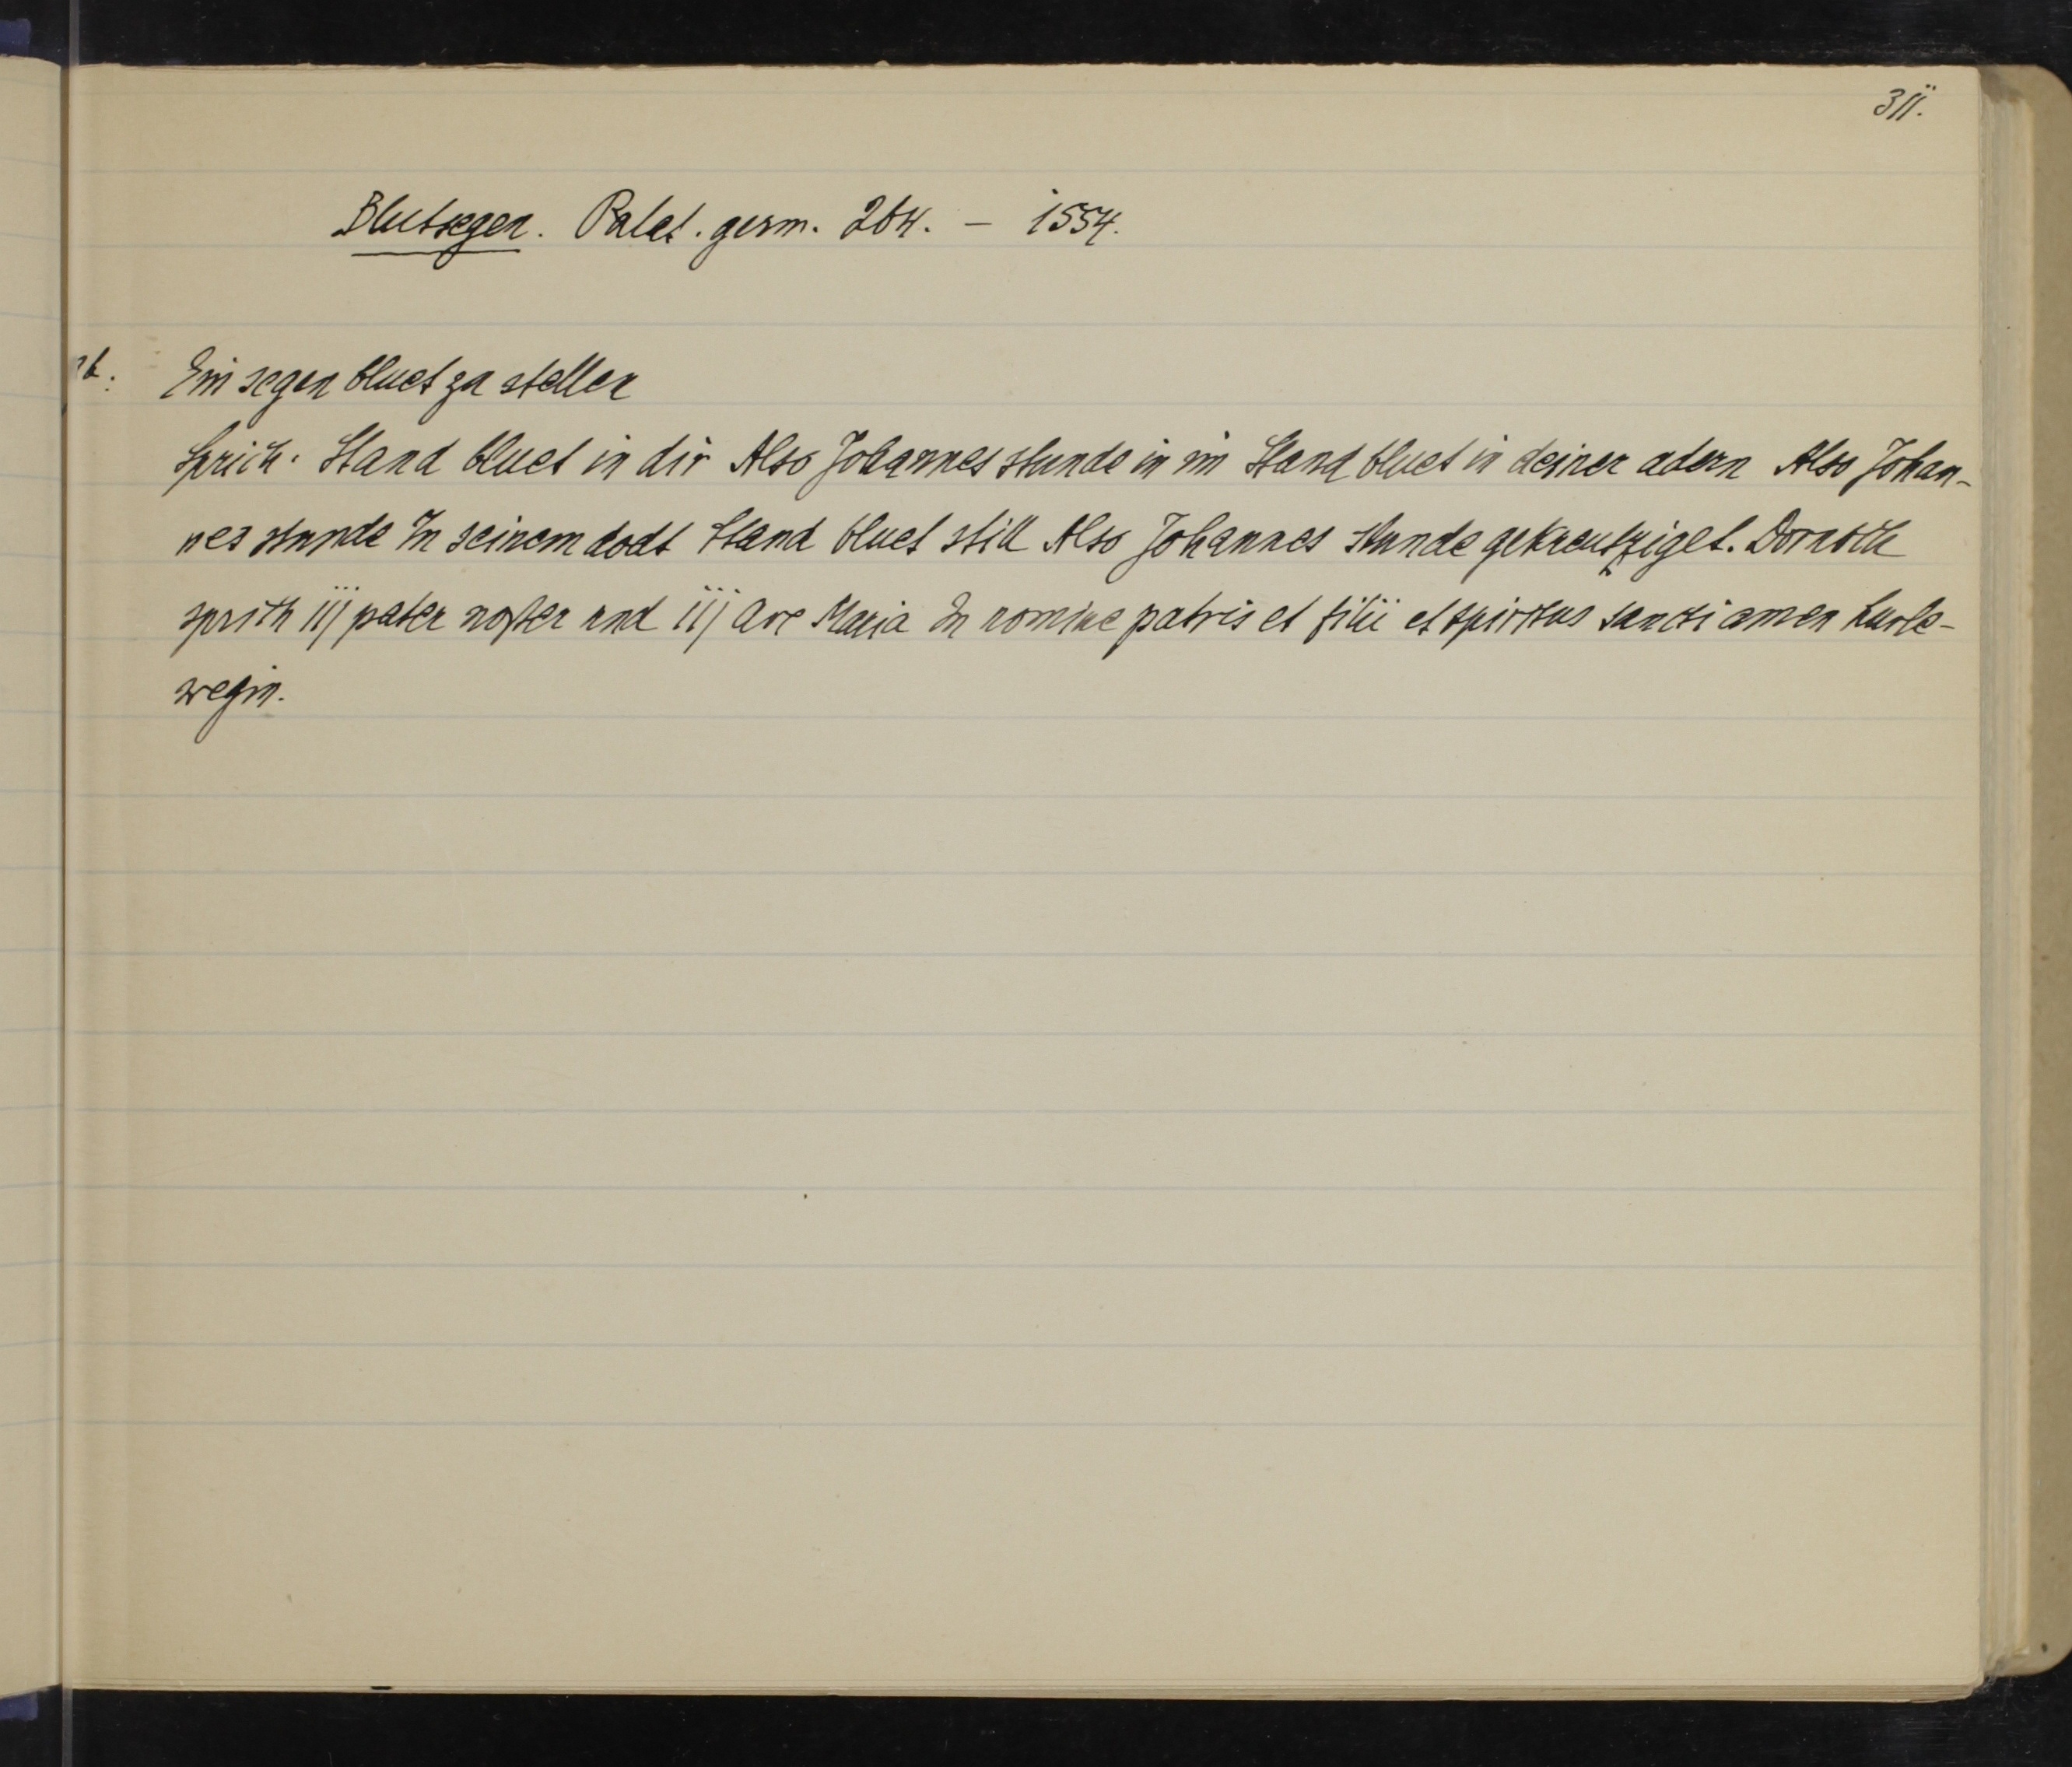 311.
Blutsegen. Palat. germ. 264. – 1554.
Ein segen bluet zu stellen
Sprich. Stand bluet in dir Also Johannes stunde in im Stand bluet in deinen adern Also Johan-
nes stunde In seinem dodt Stand bluet still Also Johannes stunde gekreutziget. Dornoch
sprich iij pater noster und iij Ave Maria In nomine patris et filii et spiritus sancti amen
wegin.